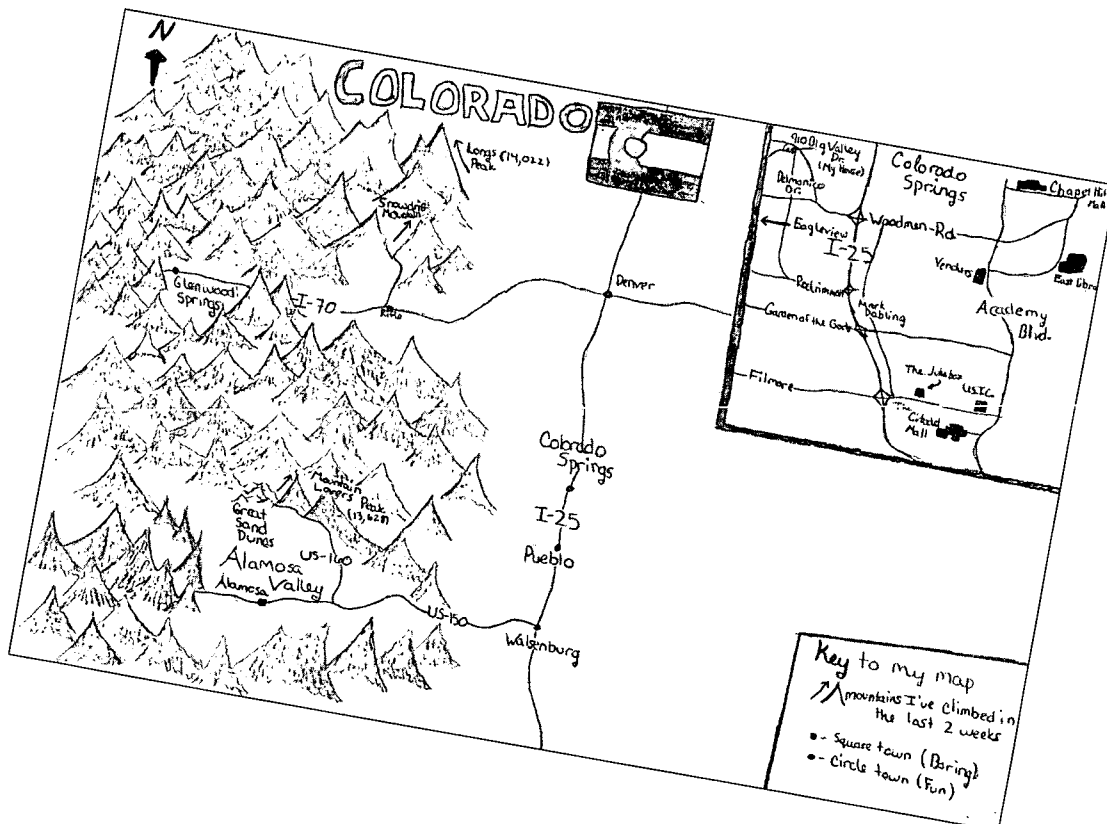 N
COLORADO
Longs (14,022)
Peak
Snowdrift
Mountain
Glenwood
Springs
I-70
Denver
Colorado
Springs
I-25
Pueblo
Mountain
Lovers Peak
(13,628)
Great
Sand
Dunes
US-160
Alamosa
Valley
Alamosa
US-150
Walsenburg
910 Big Valley
Dr.
(My House)
Delmonico
Dr.
Colorado
Springs
Chapel Hills
Mall
Woodman-Rd.
Eagleview
I-25
Venders
East Libra
Rockrimmon
Mark
Dabling
Academy
Blvd.
Garden of the Gods
Filmore
The Jukebox
U.S.I.C.
The
Citadel
Mall
Key to my map
mountains I've climbed in
the last 2 weeks
- Square town (Boring)
- Circle town (Fun)